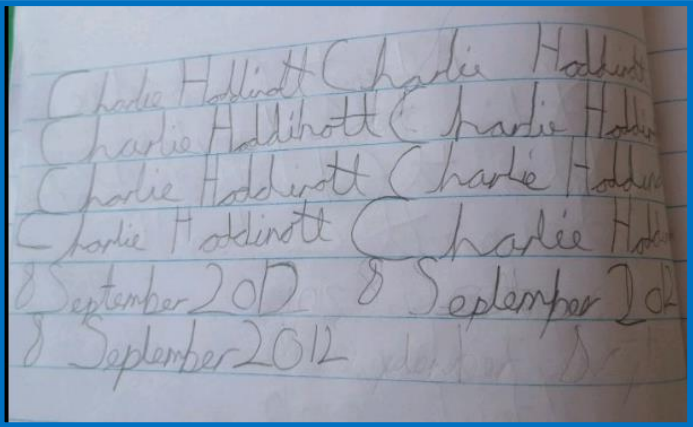 Charlie Hoddinott Charlie Hoddinott
Charlie Hoddinott Charlie Hoddin
Charlie Hoddinott Charlie Hoddin
Charlie Hoddinott Charlie Hoddin
8 September 2012 8 September 2012
8 September 2012